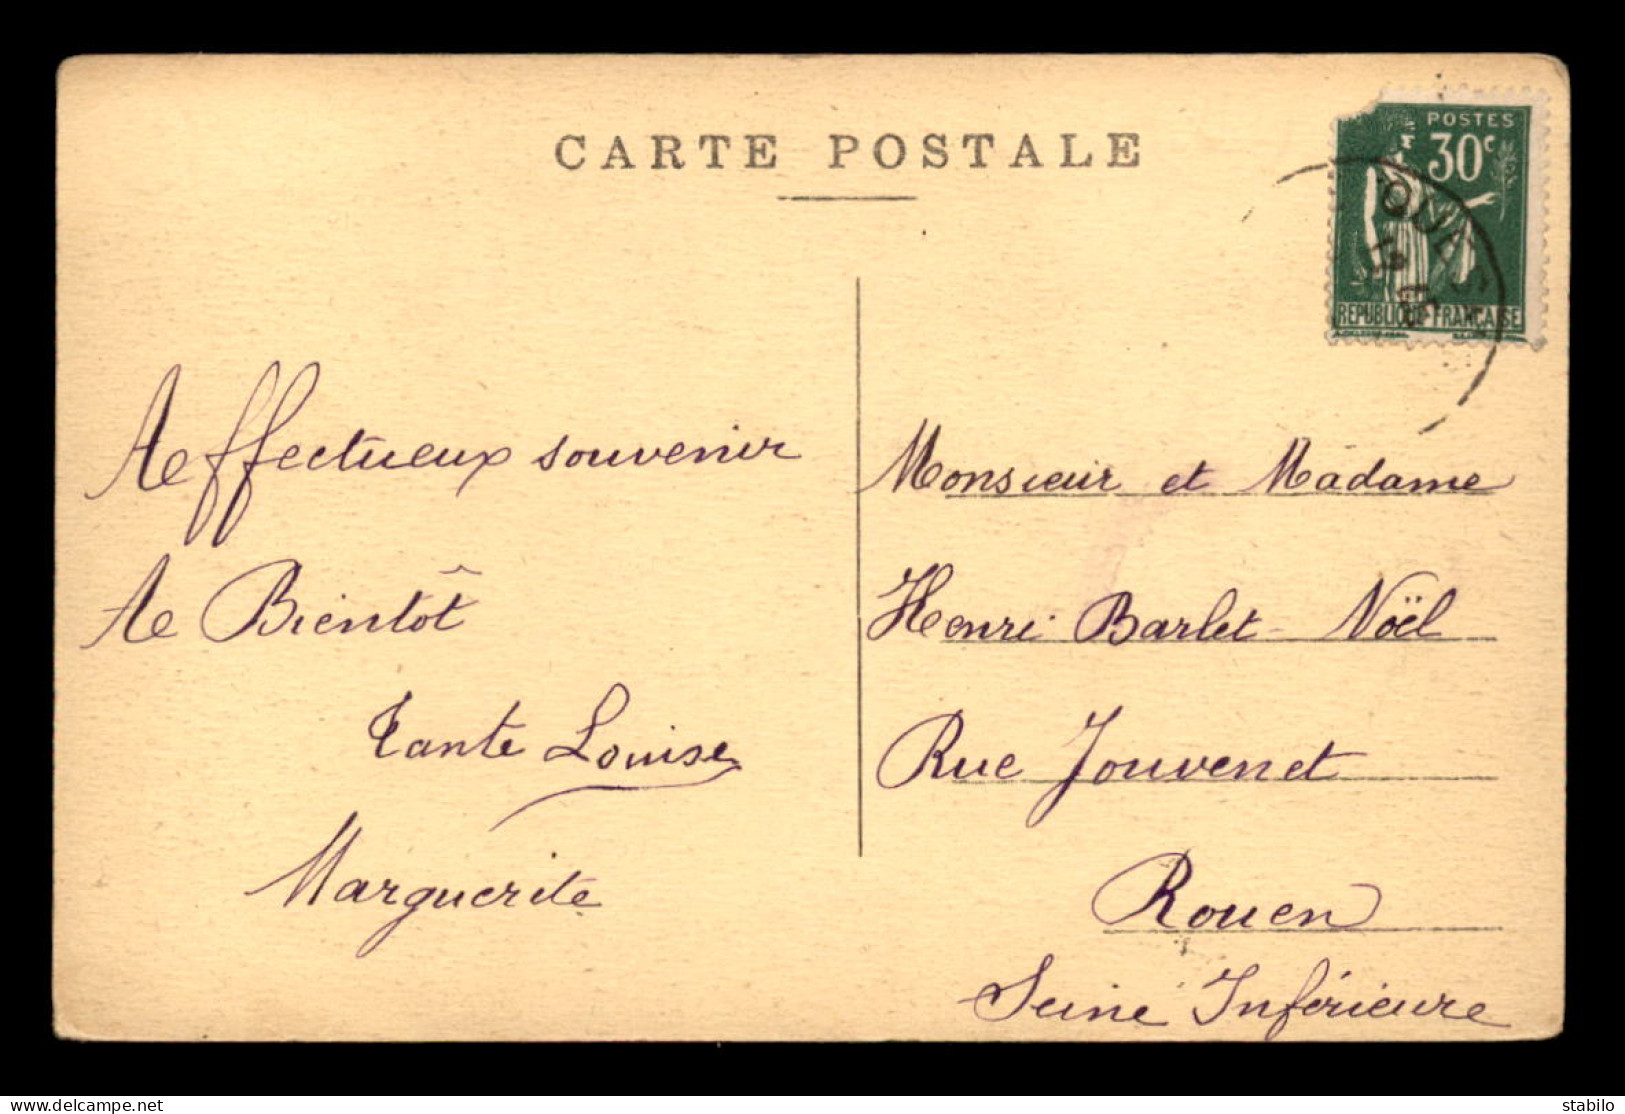 CARTE POSTALE
POSTES
30c
REPUBLIQUE FRANÇAISE
Aeffectueux souvenir
Ae Bientôt
Tante Louise
Marguerite
Monsieur et Madame
Henri Barlet - Noël
Rue Jouvenet
Rouen
Seine Inférieure
delcampe.net
stabilo